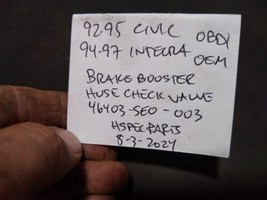 92-95 CIVIC OBD1
94-97 INTEGRA OEM
BRAKE BOOSTER
HUSE CHECK VALVE
46403-SE0-003
HSPEC PARTS
8-3-2024